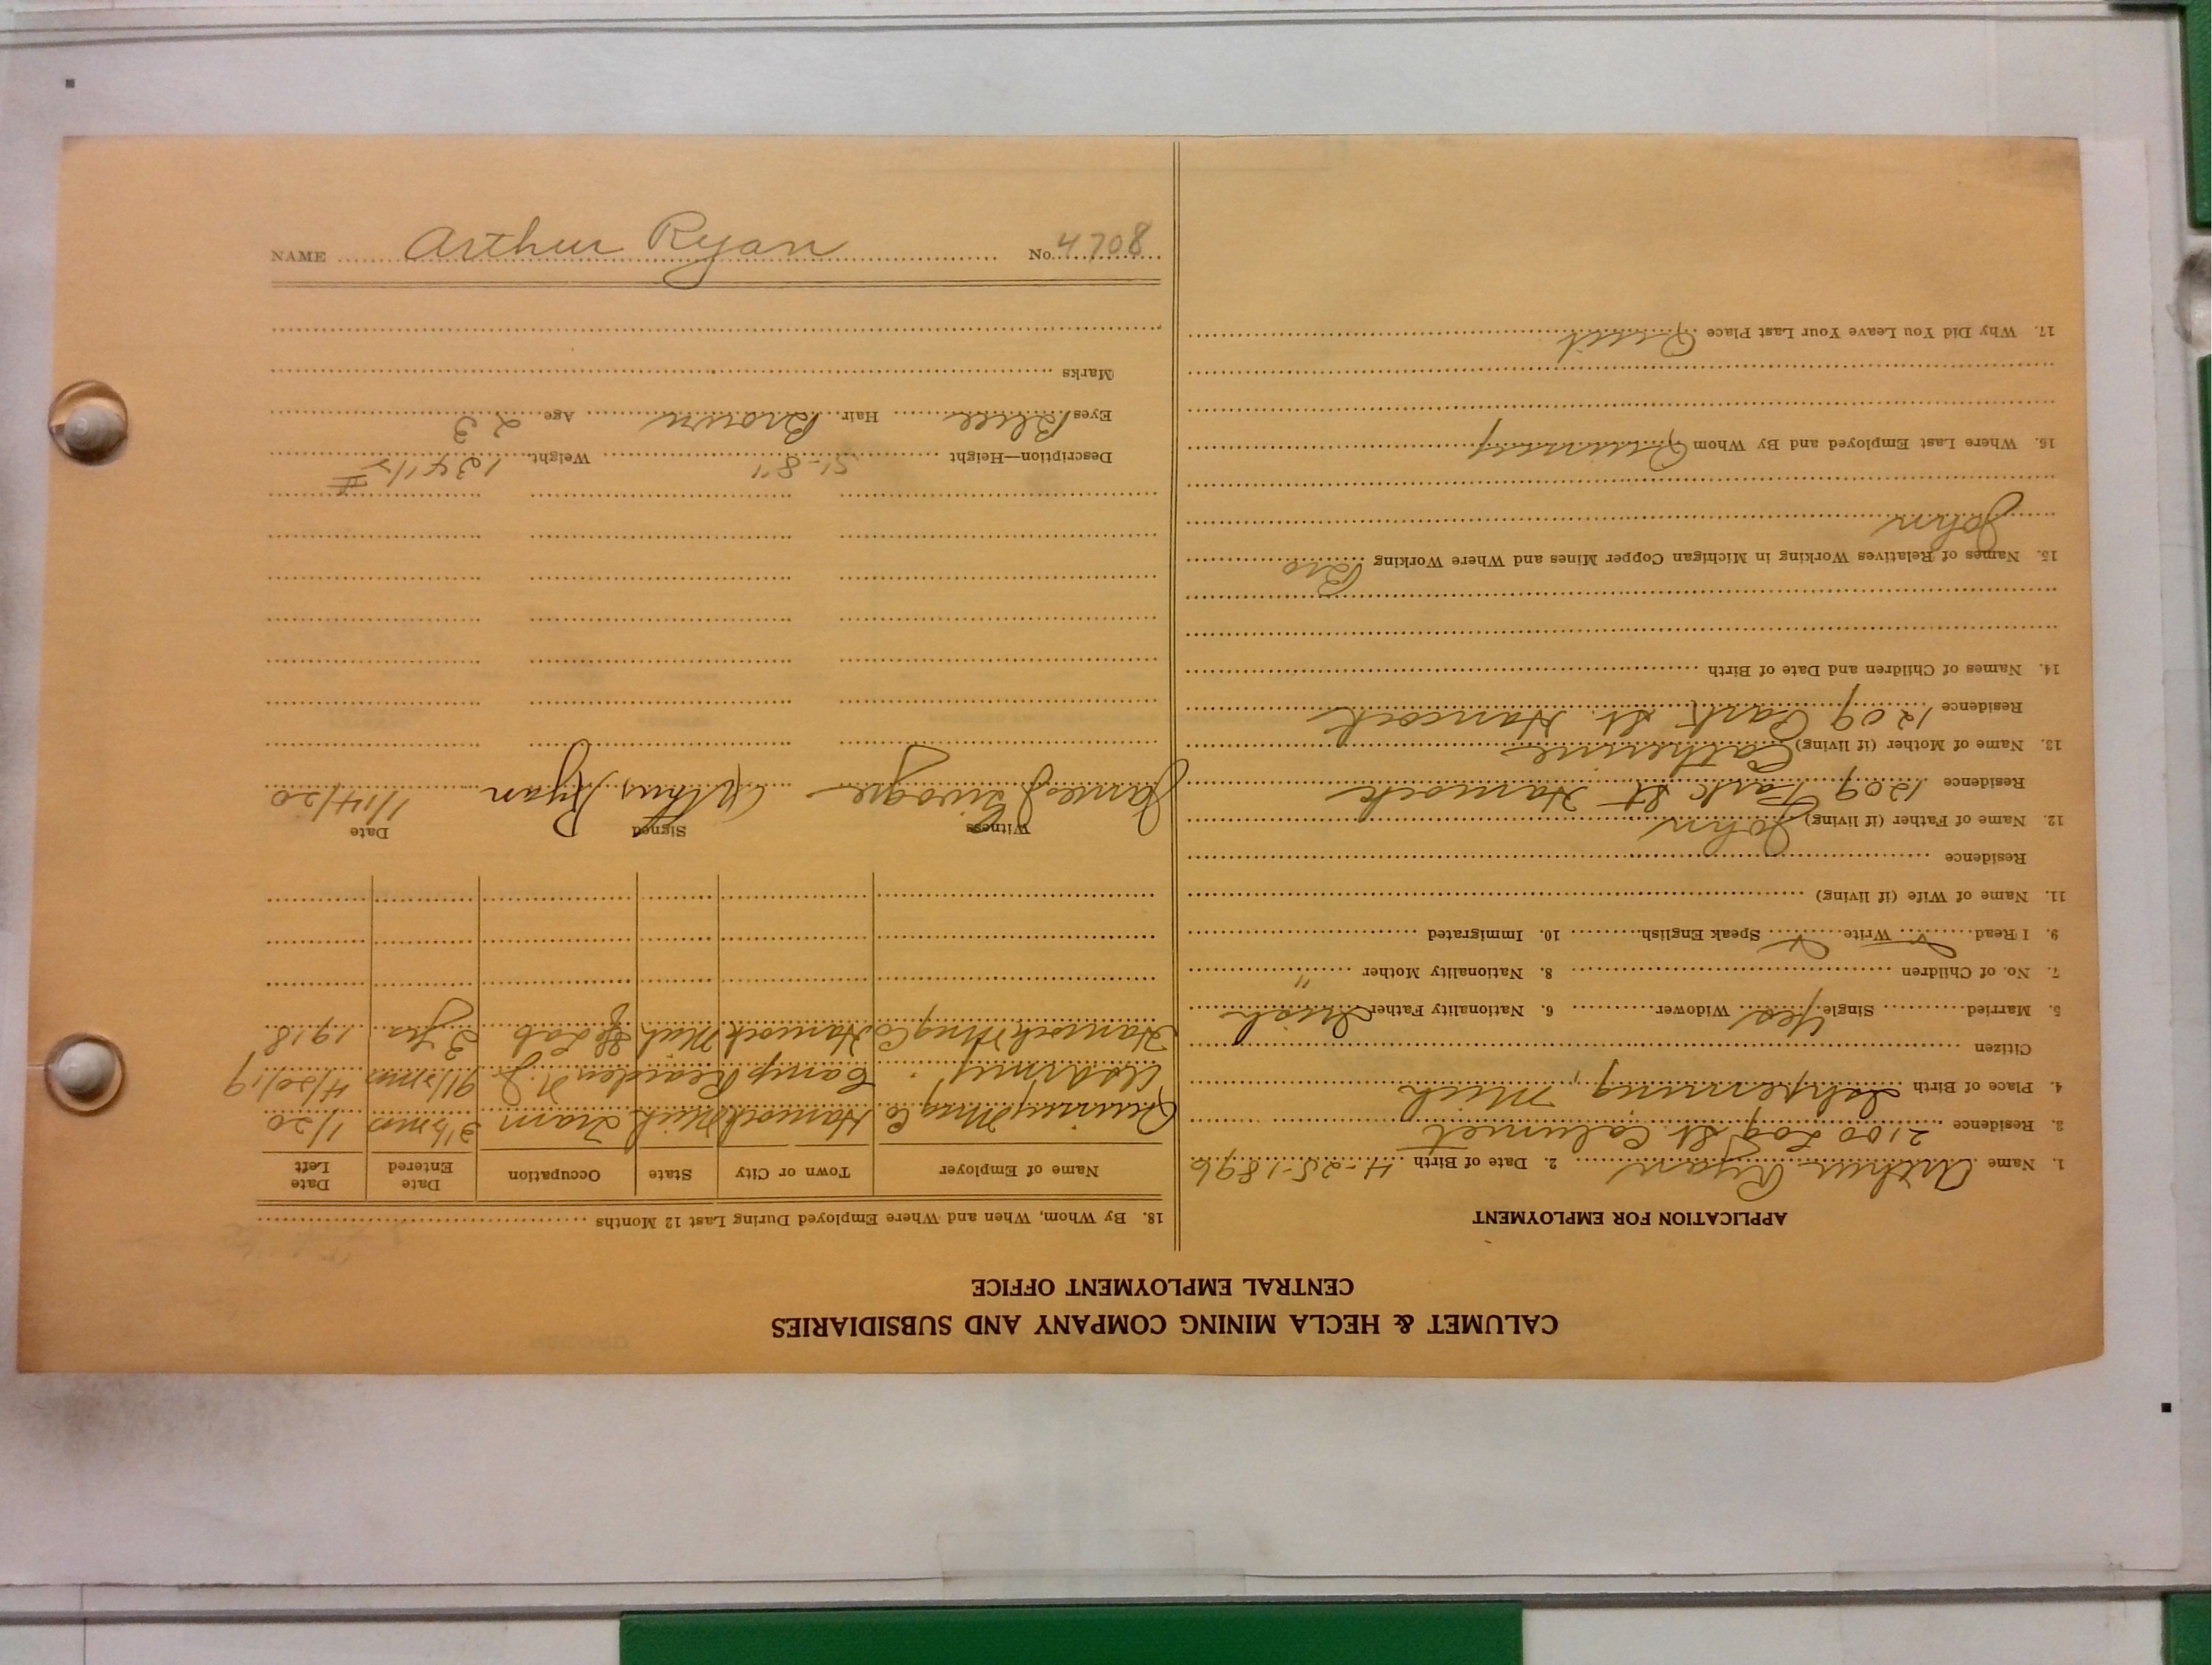 CALUMET & HECLA MINING COMPANY AND SUBSIDIARIES
CENTRAL EMPLOYMENT OFFICE
APPLICATION FOR EMPLOYMENT
1. Name Arthur Ryan 2. Date of Birth 4-25-1896
3. Residence 2100 Log St Calumet
4. Place of Birth Ishpeming, Mich
Citizen
5. Married Single Yes Widower 6. Nationality Father Irish
7. No. of Children 8. Nationality Mother "
9. I Read ✓ Write ✓ Speak English 10. Immigrated
11. Name of Wife (if living)
Residence
12. Name of Father (if living) John
Residence 1209 Park St. Hancock
13. Name of Mother (if living) Catherine
Residence 1209 Park St. Hancock
14. Names of Children and Date of Birth
15. Names of Relatives Working in Michigan Copper Mines and Where Working Bro
John
16. Where Last Employed and By Whom Quincy
17. Why Did You Leave Your Last Place Quit
18. By Whom, When and Where Employed During Last 12 Months
Name of Employer Town or City State Occupation Date Entered Date Left
Quincy Mng Co Hancock Mich Tram 2 1/2 mos 1/20
US Army Camp N.J. 9 1/2 mos 4/20/19
Hancock Mng Co Hancock Mich Lab 2 yrs 1918
Witness Signed Date
James Arthur Ryan 1/14/20
Description—Height 5'-8" Weight 134 1/2 #
Eyes Blue Hair Brown Age 23
Marks
NAME Arthur Ryan No. 4708